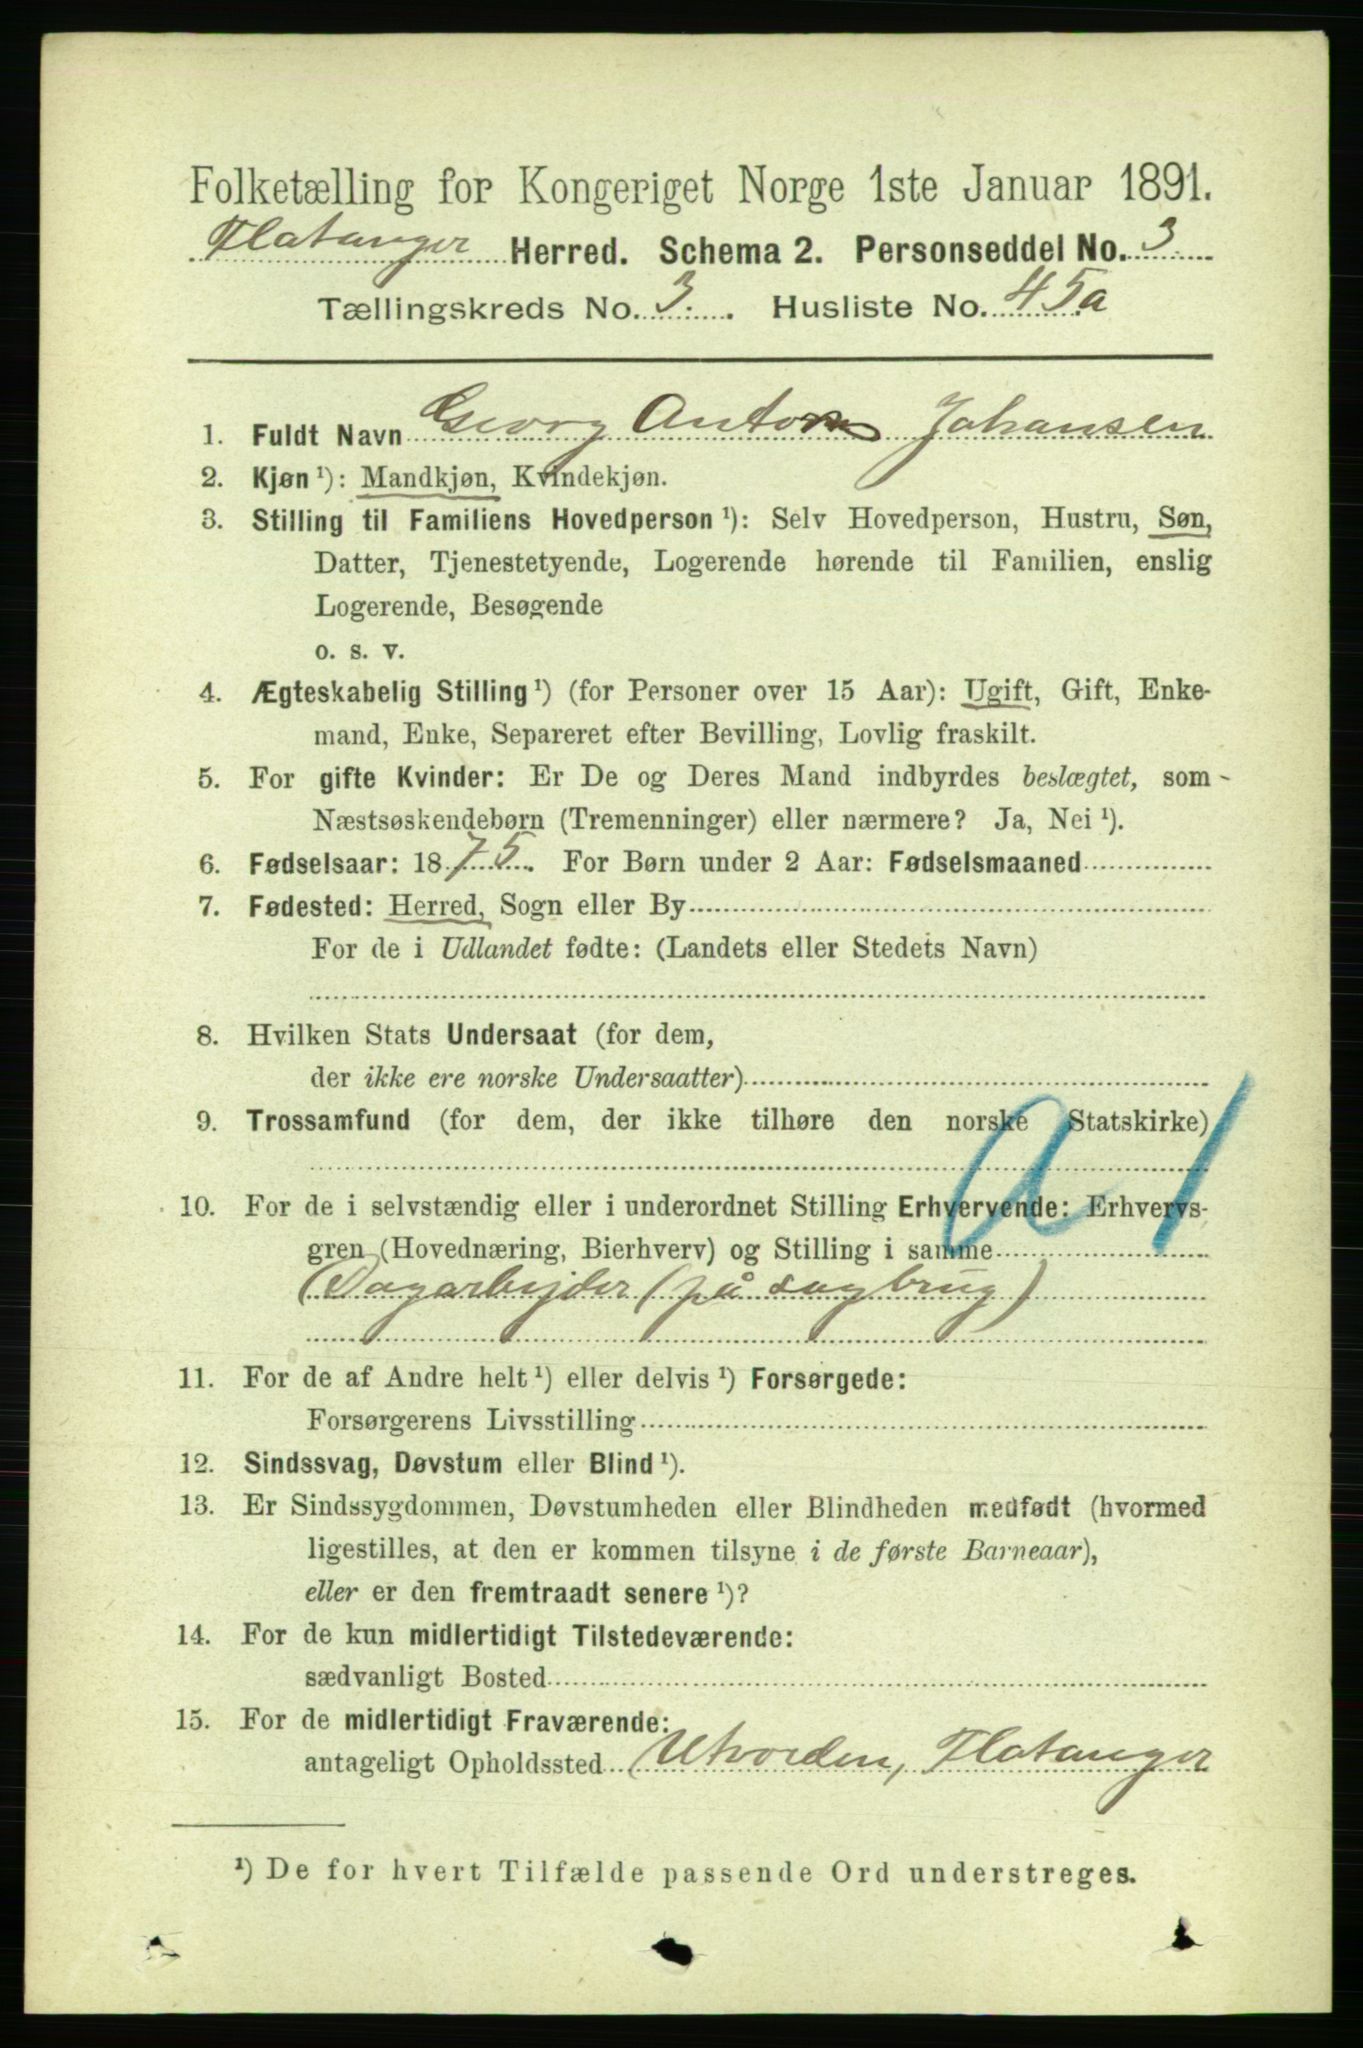 Folketælling for Kongeriget Norge 1ste Januar 1891.
Flatanger Herred. Schema 2. Personseddel No. 3
Tællingskreds No. 3. Husliste No. 45a
1. Fuldt Navn Georg Anton Johansen
2. Kjøn ¹): Mandkjøn, Kvindekjøn.
3. Stilling til Familiens Hovedperson ¹): Selv Hovedperson, Hustru, Søn,
Datter, Tjenestetyende, Logerende hørende til Familien, enslig
Logerende, Besøgende
o. s. v.
4. Ægteskabelig Stilling ¹) (for Personer over 15 Aar): Ugift, Gift, Enke-
mand, Enke, Separeret efter Bevilling, Lovlig fraskilt.
5. For gifte Kvinder: Er De og Deres Mand indbyrdes beslægtet, som
Næstsøskendebørn (Tremenninger) eller nærmere? Ja, Nei ¹).
6. Fødselsaar: 1875. For Børn under 2 Aar: Fødselsmaaned
7. Fødested: Herred, Sogn eller By
For de i Udlandet fødte: (Landets eller Stedets Navn)
8. Hvilken Stats Undersaat (for dem,
der ikke ere norske Undersaatter)
9. Trossamfund (for dem, der ikke tilhøre den norske Statskirke)
a 1
10. For de i selvstændig eller i underordnet Stilling Erhvervende: Erhvervs-
gren (Hovednæring, Bierhverv) og Stilling i samme
Dagarbejder (på sagbrug)
11. For de af Andre helt ¹) eller delvis ¹) Forsørgede:
Forsørgerens Livsstilling
12. Sindssvag, Døvstum eller Blind ¹).
13. Er Sindssygdommen, Døvstumheden eller Blindheden medfødt (hvormed
ligestilles, at den er kommen tilsyne i de første Barneaar),
eller er den fremtraadt senere ¹)?
14. For de kun midlertidigt Tilstedeværende:
sædvanligt Bosted
15. For de midlertidigt Fraværende:
antageligt Opholdssted Utvorden, Flatanger
¹) De for hvert Tilfælde passende Ord understreges.